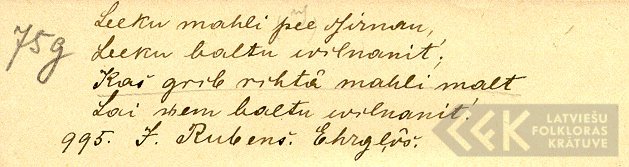 75g
Leeku mahli pee dsirnau,
Leeku baltu wilnanit';
Kas grib rihtâ mahli malt
Lai ņem baltu wilnanit'.
995. J. Rubens. Ehrgļôs.
LATVIEŠU
FOLKLORAS
KRĀTUVE